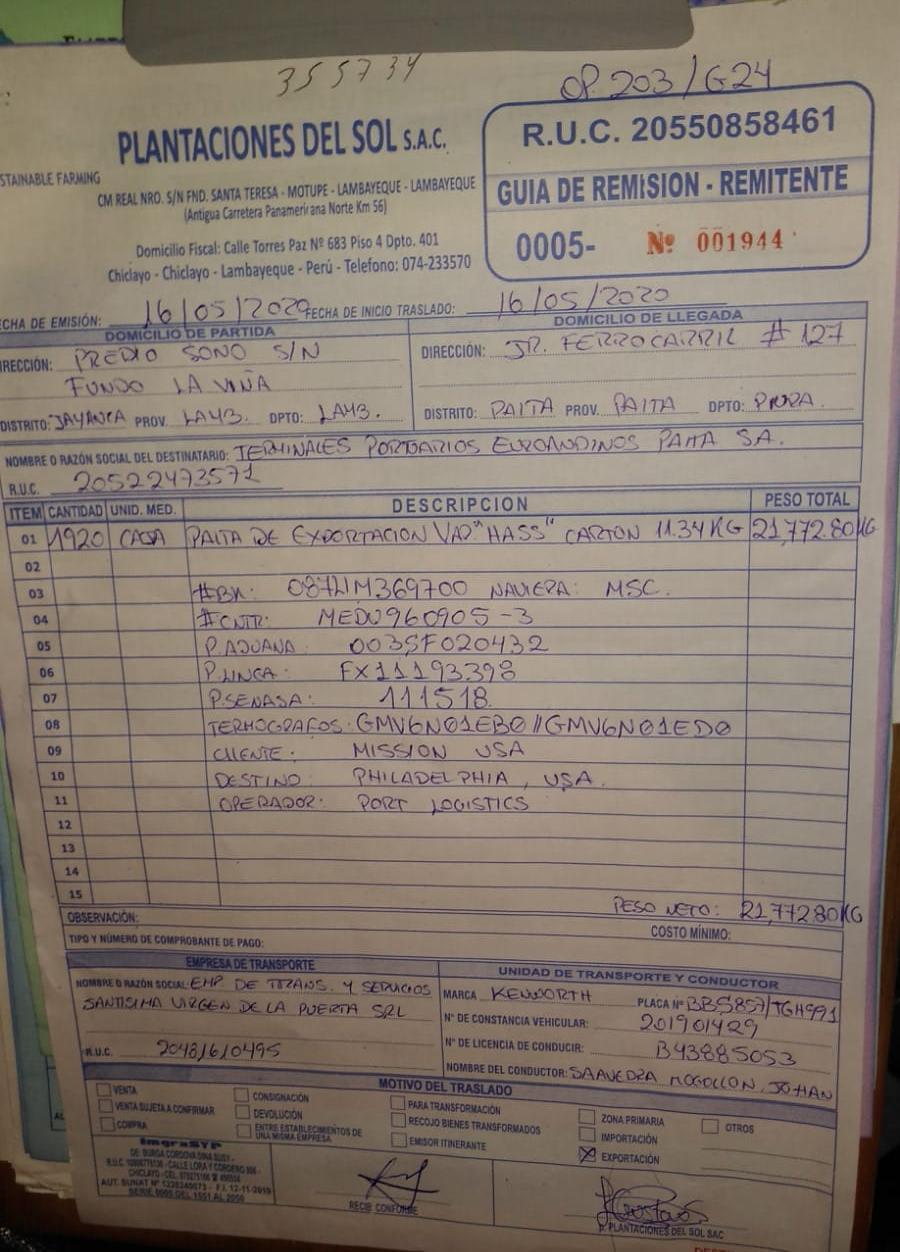 355734
OP. 203/G24
PLANTACIONES DEL SOL S.A.C.
STAINABLE FARMING
CM REAL NRO. S/N FND. SANTA TERESA - MOTUPE - LAMBAYEQUE - LAMBAYEQUE
(Antigua Carretera Panamericana Norte Km 56)
Domicilio Fiscal: Calle Torres Paz Nº 683 Piso 4 Dpto. 401
Chiclayo - Chiclayo - Lambayeque - Perú - Telefono: 074-233570
R.U.C. 20550858461
GUIA DE REMISION - REMITENTE
0005- Nº 001944
ECHA DE EMISIÓN: 16/05/2020 FECHA DE INICIO TRASLADO: 16/05/2020
DOMICILIO DE PARTIDA
DIRECCIÓN: PREDIO SONO S/N
FUNDO LA VIÑA
DISTRITO: JAYANCA PROV. LAMB. DPTO: LAMB.
DOMICILIO DE LLEGADA
DIRECCIÓN: JR. FERROCARRIL # 127
DISTRITO: PAITA PROV. PAITA DPTO: PIURA
NOMBRE O RAZÓN SOCIAL DEL DESTINATARIO: TERMINALES PORTUARIOS EUROANDINOS PAITA SA.
R.U.C. 20522473571
ITEM CANTIDAD UNID. MED. DESCRIPCION PESO TOTAL
01 1920 CAJA PALTA DE EXPORTACION VAR "HASS" CARTON 11.34 KG 21,772.80KG
02
03 #BK: NAVIERA: MSC.
04 #CNTR: MEDU960905-3
05 P.ADUANA: 003SF020432
06 P.LINEA: FX11193398
07 P.SENASA: 111518
08 TERMOGRAFOS: GMV6N01EB0//GMV6N01ED0
09 CLIENTE: MISSION USA
10 DESTINO: PHILADELPHIA, USA.
11 OPERADOR: PORT LOGISTICS
12
13
14
15
PESO NETO: 21,772.80KG
OBSERVACIÓN:
COSTO MÍNIMO:
TIPO Y NÚMERO DE COMPROBANTE DE PAGO:
EMPRESA DE TRANSPORTE
NOMBRE O RAZÓN SOCIAL: EMP DE TRANS. Y SERVICIOS
SANTISIMA VIRGEN DE LA PUERTA SRL
R.U.C. 20481610495
UNIDAD DE TRANSPORTE Y CONDUCTOR
MARCA KENWORTH PLACA Nº BBS857/TGH991
N° DE CONSTANCIA VEHICULAR: 201901429
N° DE LICENCIA DE CONDUCIR: B43885053
NOMBRE DEL CONDUCTOR: SAAVEDRA MOGOLLON, JOHAN
MOTIVO DEL TRASLADO
VENTA
VENTA SUJETA A CONFIRMAR
COMPRA
CONSIGNACIÓN
DEVOLUCIÓN
ENTRE ESTABLECIMIENTOS DE
UNA MISMA EMPRESA
PARA TRANSFORMACIÓN
RECOJO BIENES TRANSFORMADOS
EMISOR ITINERANTE
ZONA PRIMARIA
IMPORTACIÓN
EXPORTACIÓN
OTROS
ImgraSYP
DE: BURGA CORDOVA DINA SUSY -
CALLE LORA Y CORDERO
AUT. SUNAT Nº F.I. 12-11-2019
SERIE 0005 DEL 1551 AL 2050
RECIBI CONFORME
P. PLANTACIONES DEL SOL SAC